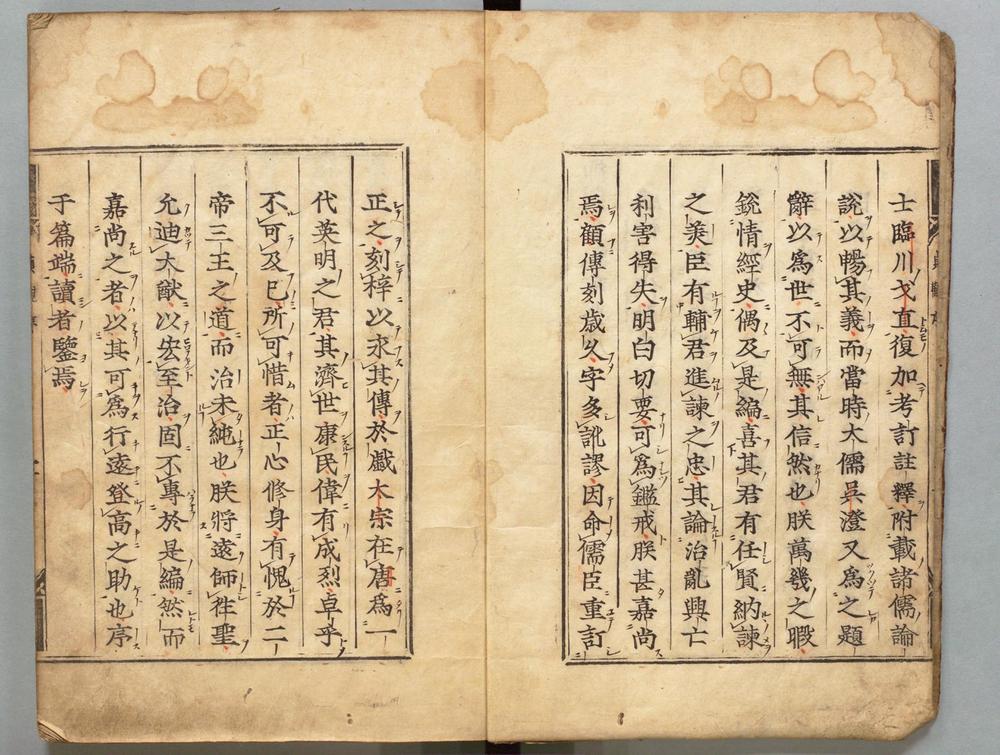 士臨川戈直復加考訂註釋附載諸儒論
說以暢其義而當時大儒吳澄又爲之題
辭以爲世不可無其信然也朕萬幾之暇
銳情經史偶及是編喜其君有任賢納諫
之美臣有輔君進諫之忠其論治亂興亡
利害得失明白切要可爲鑑戒朕甚嘉尚
焉顧傳刻歳久字多訛謬因命儒臣重訂
正之刻梓以永其傳於戲太宗在唐爲一
代英明之君其濟世康民偉有成烈卓乎
不可及已所可惜者正心修身有愧於二
帝三王之道而治未純也朕將遠師徃聖
允迪大猷以宏至治固不專於是編然而
嘉尚之者以其可爲行遠登高之助也序
于篇端讀者鑒焉